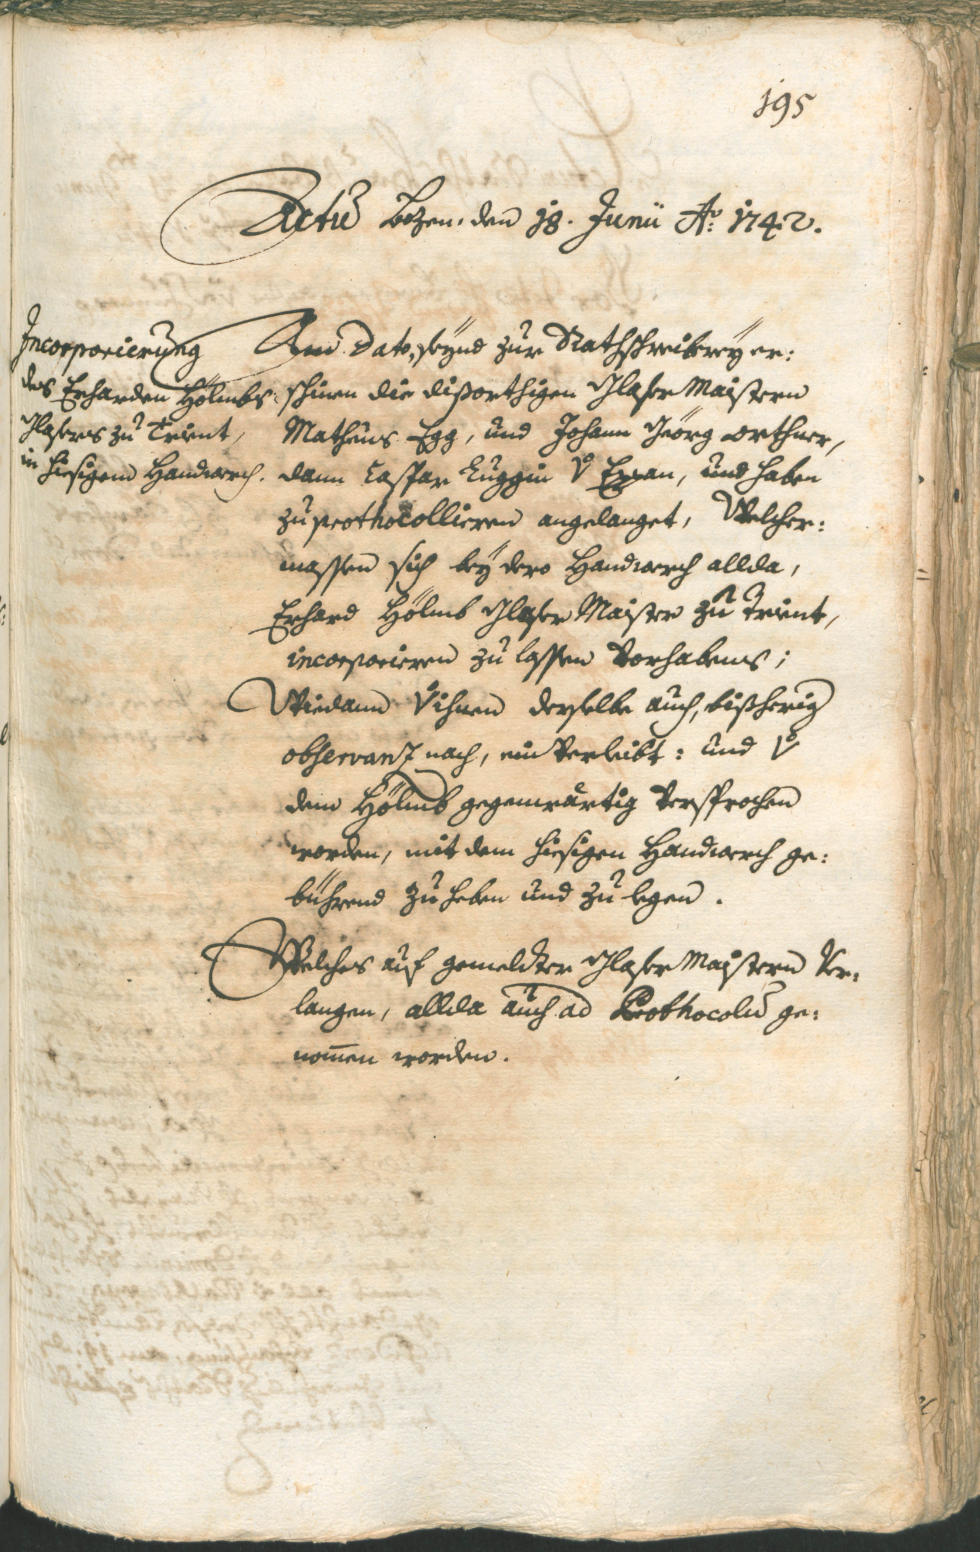 195
Actũ Bozen, den 18. Junii Aõ: 1742.
Incorporierung
des Erharden Hölmbs,
Glasers zu Trient,
in hiesigem Handwerch.
Anno Dato, seÿnd zur Rathschreibereÿ er:
schinen die dißorthigen Glaser Maistern
Matheus Egg, und Johann Georg Orthner,
dann Caspar Luggin v Eppan, und haben
zu prothocollieren angelanget, Welcher:
massen sich beÿ dero Handwerch allda,
Erhard Hölmb Glaser Maister zu Trient,
incorporieren zu lassen Vorhabens;
Wiedann v ihnen derselbe auch, bißherig
observanz nach, ein Verleibt: und v
dem Hölmb gegenwärtig Versprochen
worden, mit dem hiesigen Handwerch ge:
bührend zu heben und zu legen.
Welches auf gemeldter Glaser Maistern Ver:
langen, allda auch ad Prothocolũ ge:
nom̃en worden.